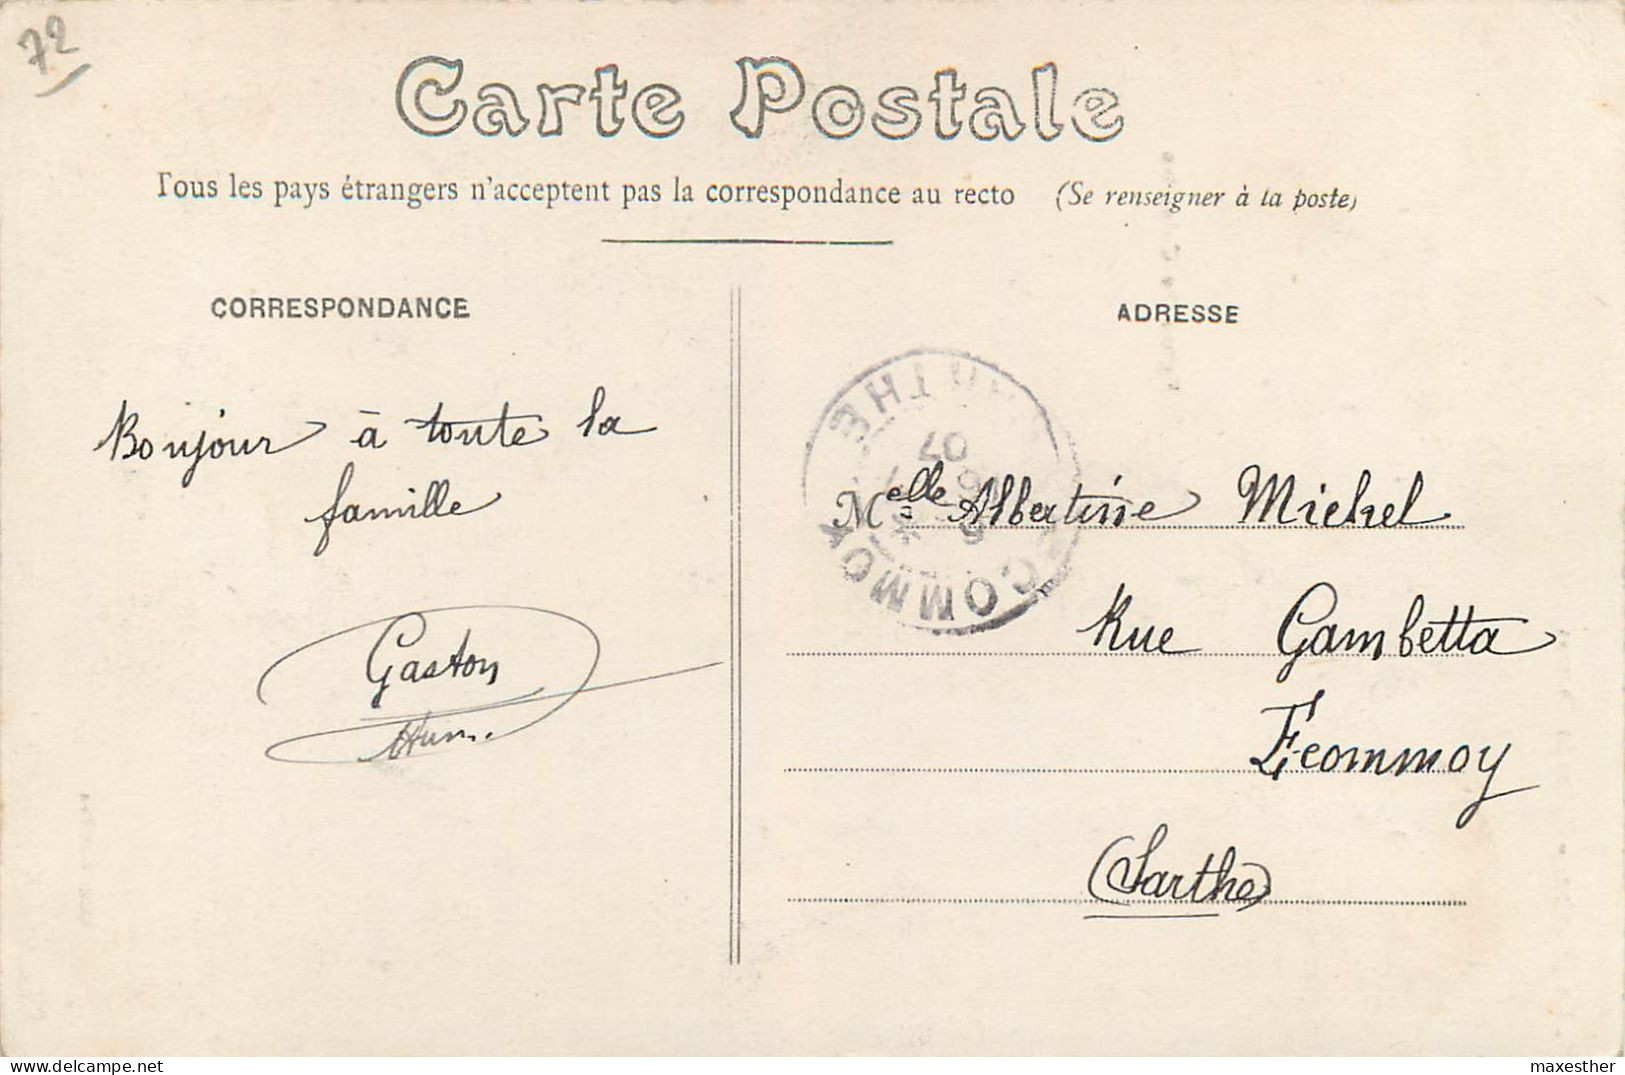 72
Carte Postale
Tous les pays étrangers n'acceptent pas la correspondance au recto (Se renseigner à la poste)
CORRESPONDANCE
Bonjour à toute la
famille
Gaston
ADRESSE
SARTHE
07
ECOMMOY
Melle Albertine Michel
Rue Gambetta
Ecommoy
(Sarthe)
delcampe.net
maxesther